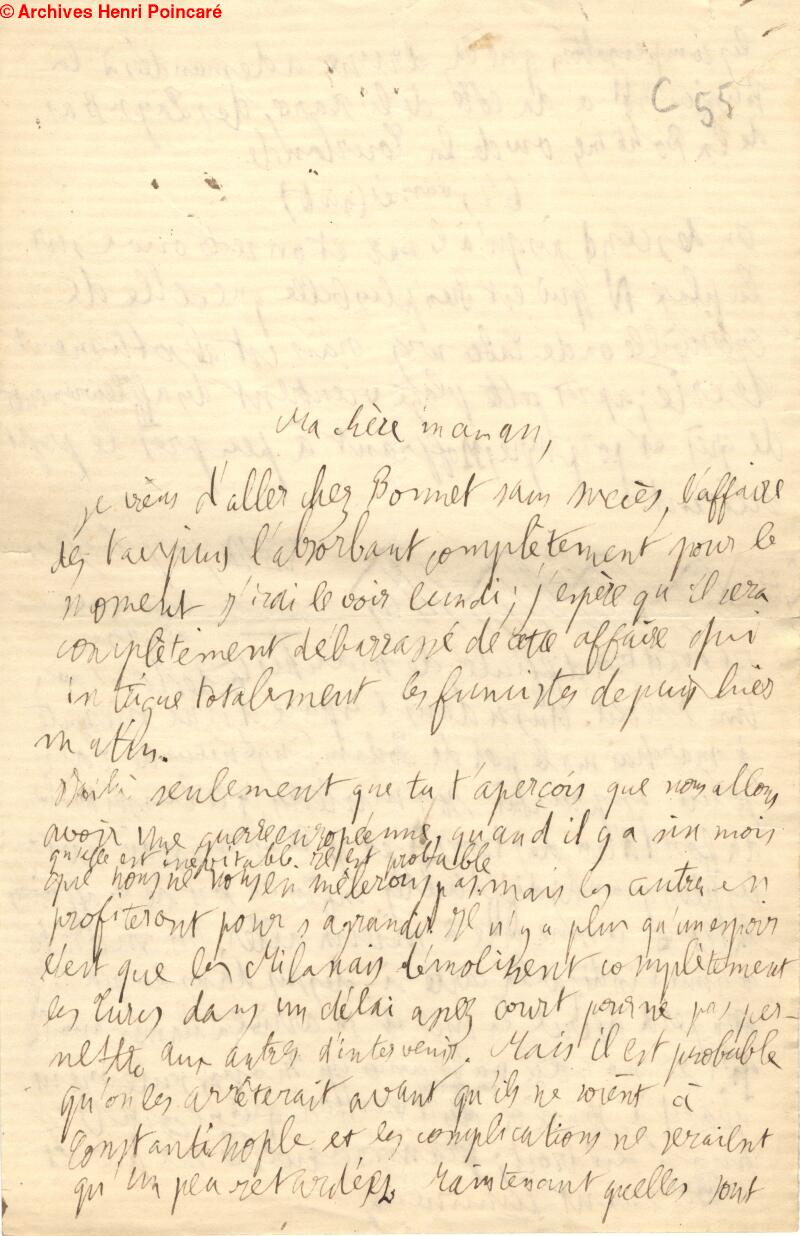 © Archives Henri Poincaré
C 55
Ma chère maman,
Je viens d'aller chez Bonnet sans succès, l'affaire
des taupins l'absorbant complètement pour le
moment j'irai le voir lundi; j'espère qu'il sera
complètement débarrassé de cette affaire qui
intrigue totalement les fumistes depuis hier
matin.
Voilà seulement que tu t'aperçois que nous allons
avoir une guerre européenne, quand il y a six mois
qu'elle est inévitable. Il est probable
que nous ne nous en mêlerons pas, mais les autres en
profiteront pour s'agrandir. Il n'y a plus qu'un espoir
c'est que les Milanais démolissent complètement
les Turcs dans un délai assez court pour ne pas per-
mettre aux autres d'intervenir. Mais il est probable
qu'on les arrêterait avant qu'ils ne soient à
Constantinople et les complications ne seraient
qu'un peu retardées. Maintenant quelles sont